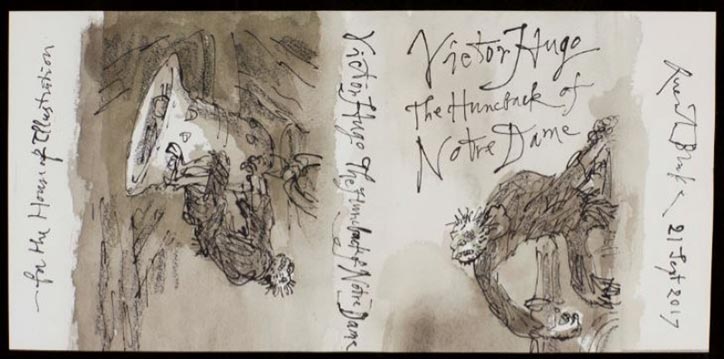 — for the House of Illustration
Victor Hugo The Hunchback of Notre Dame
Victor Hugo
The Huncback of
Notre Dame
Quentin Blake 21 Sept 2017